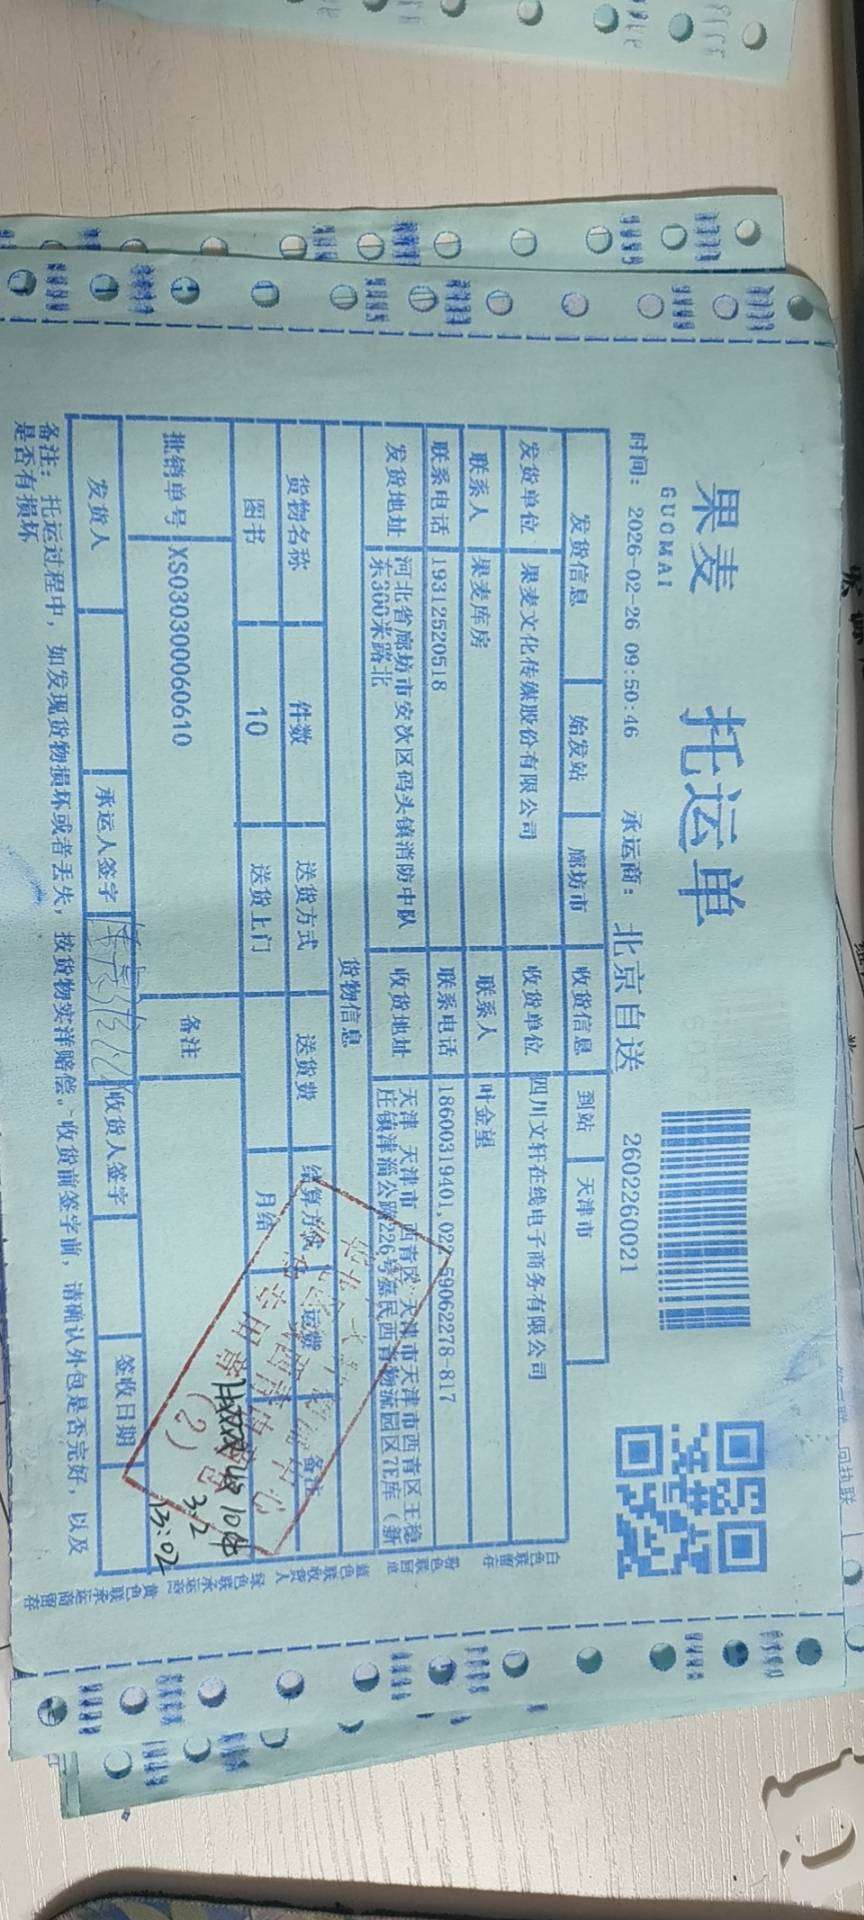 果麦 托运单
GUOMAI
时间: 2026-02-26 09:50:46 承运商: 北京自送 2602260021
发货信息 始发站 廊坊市 收货信息 到站 天津市
发货单位 果麦文化传媒股份有限公司 收货单位 四川文轩在线电子商务有限公司
联系人 果麦库房 联系人 叶金望
联系电话 19312520518 联系电话 18600319401,022-59062278-817
发货地址 河北省廊坊市安次区码头镇消防中队 收货地址 天津 天津市 西青区 天津市天津市西青区王稳
东300米路北 庄镇津淄公路226号盛民西青物流园区7E库（新
货物信息
货物名称 件数 送货方式 送货费 结算方式 运费 备注
图书 10 送货上门 月结
批销单号 XS030300060610 备注
发货人 承运人签字 收货人签字 签收日期
收10件
3.2
13:02
(2)
备注: 托运过程中，如发现货物损坏或者丢失，按货物实洋赔偿。收货前签字前，请确认外包是否完好，以及
是否有损坏
白色联留存 粉色联回单 蓝色联收货人 绿色联承运商 黄色联承运商留存